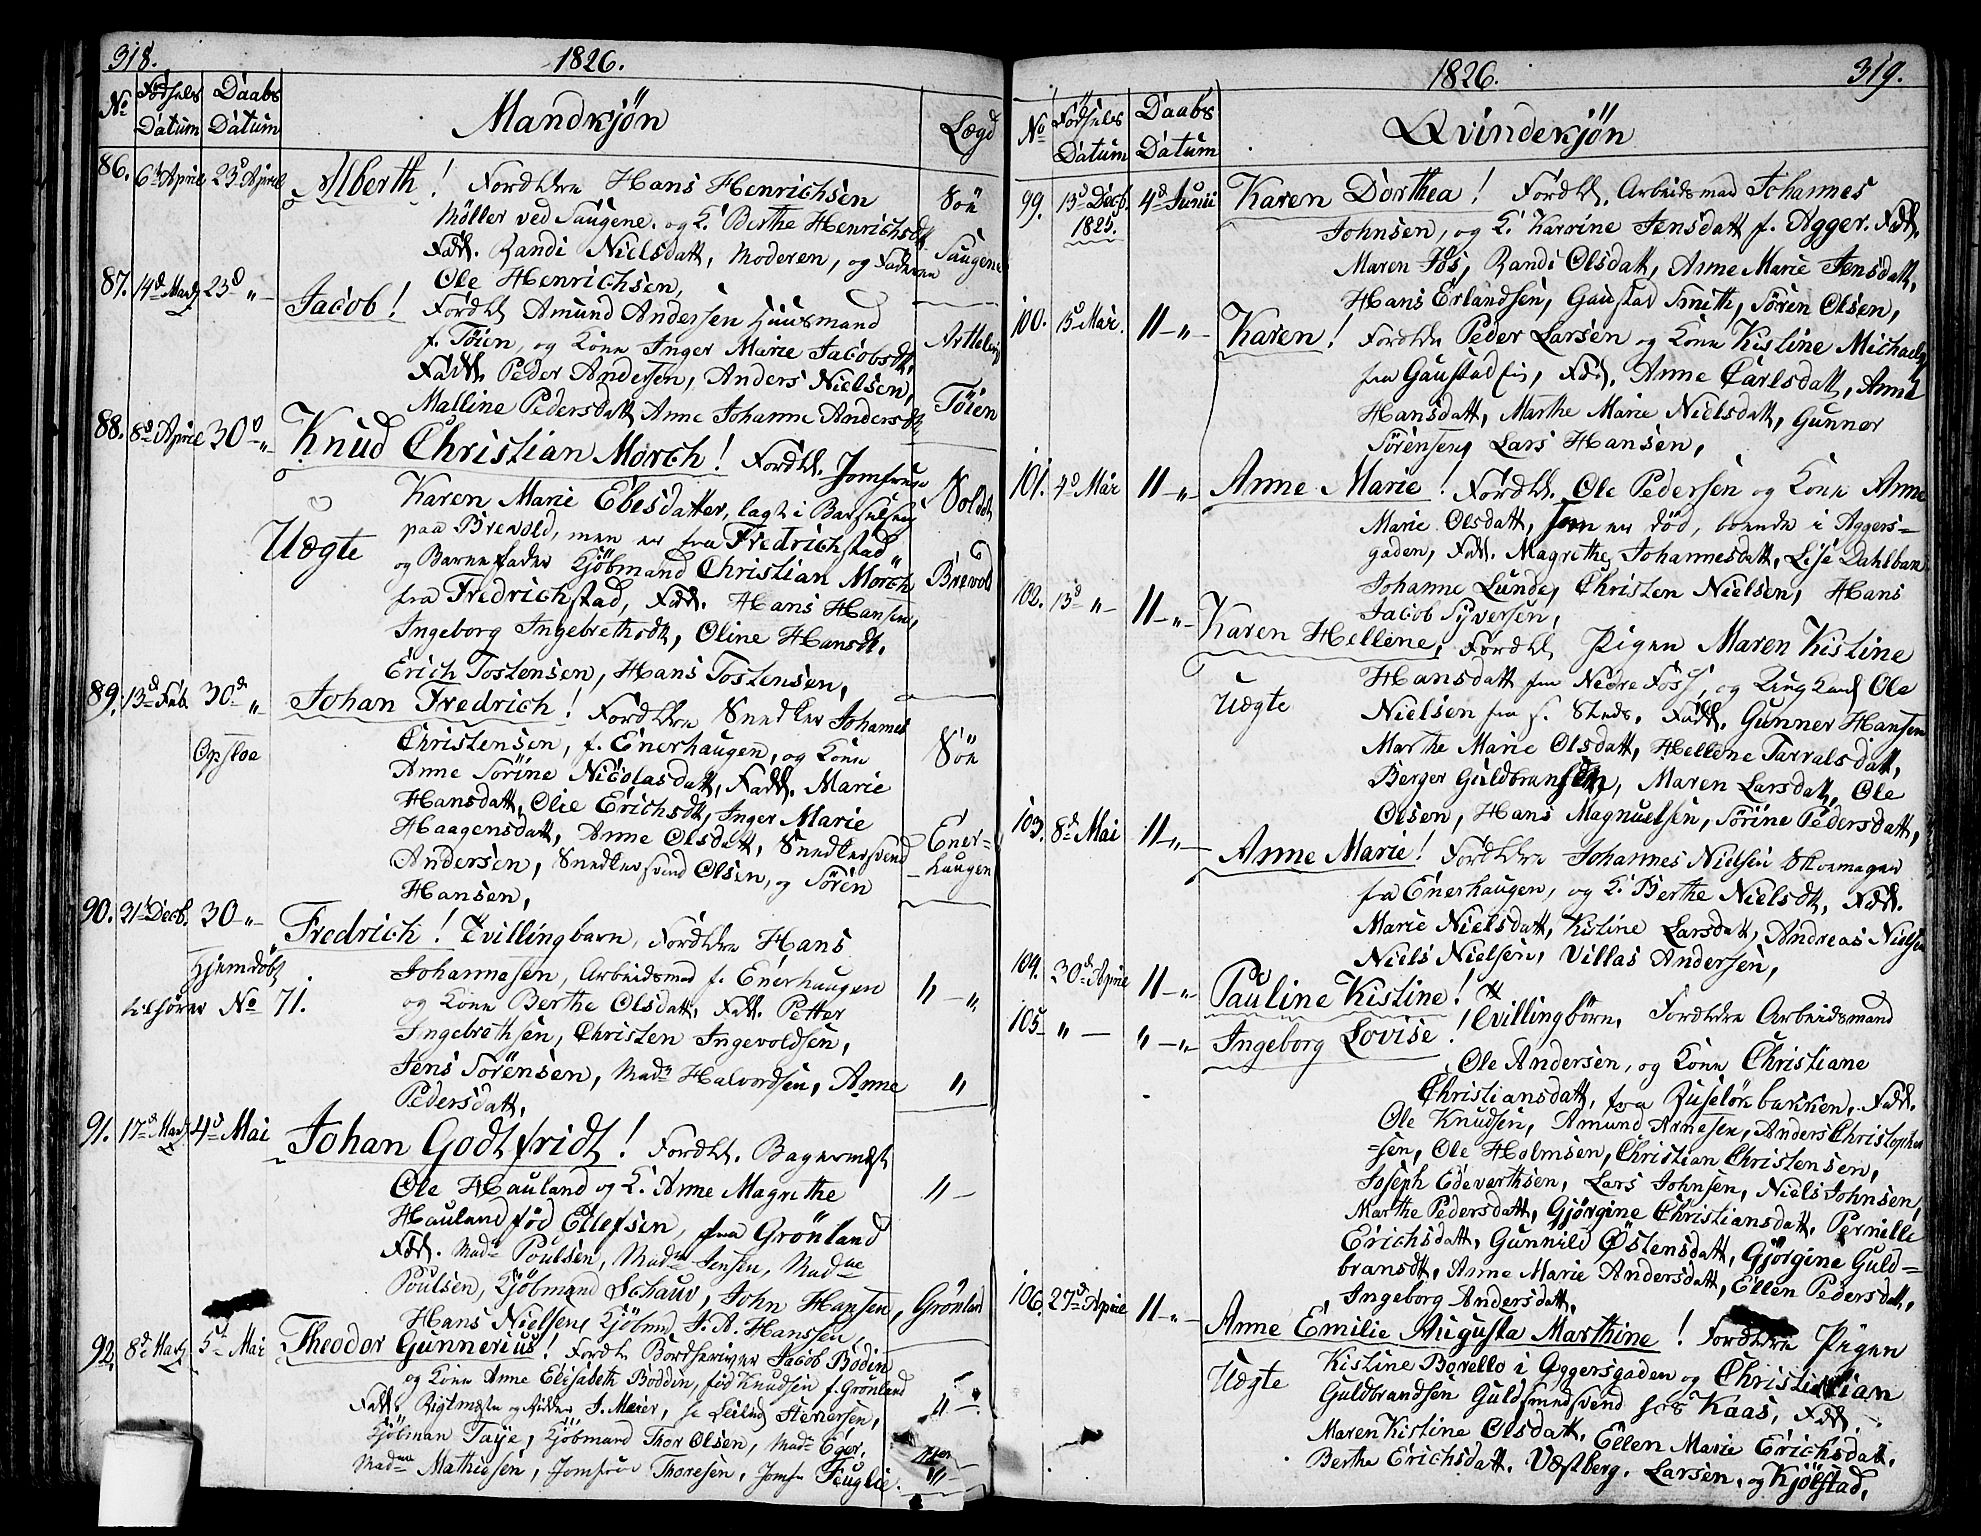 318.
1826.
No
Fødsels Datum
Daabs Datum
Mandkjön
Lægd
86. 6te April 23d April Alberth! Forældre Hans Henrichsen
Möller ved Saugene. og K. Berthe Henrichsdtt
Fadd. Randi Nielsdatt, Moderen, og Faderen
Ole Henrichsen,
Sön
Saugene
87. 14d Marz 23d "
Jacob! Foreldr Amund Andersen Huusmand
f. Töien, og Kone Inger Marie Jacobsdtt,
Fadd. Peder Andersen, Anders Nielsen,
Malline Pedersdatt Anne Johanne Andersdt
Töien
88. 8d April 30d "
Knud Christian Mörch! Foreld. Jomfrue
Karen Marie Ebesdatter, lagt i Barselseng
paa Brevold, men er fra Fredrichstad
Uægte
og Barnefader Kjöbmand Christian Mörch
fra Fredrichstad, Fadd. Hans Hansen,
Ingeborg Ingebrethsdt, Oline Hansdt.
Erich Tostensen, Hans Tostensen,
Brevold
89. 13d Feb. 30d "
Johan Fredrich! Foreldre Snedker Johannes
Christensen, f. Enerhaugen, og Kone
Opsloe
Anne Sörine Nicolasdatt, Fadd. Marie
Hansdatt, Olie Erichsdt, Inger Marie
Haagensdatt, Anne Olsdatt, Snedkersvend
Andersen, Snedkersvend Olsen, og Sören
Hansen,
Sön
Ener-
haugen
90. 31te Decb. 30 "
Fredrich! Tvillingbarn, Foreldre Hans
Hjemdöbt,
Johannesen, Arbeidsmd f. Enerhaugen
tilhörer No 71.
og Kone Berthe Olsdatt, Fadd. Petter
Ingebrethsen, Christen Ingevoldsen,
Jens Sörensen, Madm Halvordsen, Anne
Pedersdatt,
91. 17d Marz 4d Mai Johan Godtfridt! Foreld. Bagermest
Ole Hauland og K. Anne Magrethe
Hauland född Ellefsen, fra Grönland
Fadd. Madm Poulsen, Madm Jensen, Madme
Poulsen, Kjöbmand Schauv, John Hansen,
Hans Nielsen, Kjöbmd J. A. Hanssen,
Grönland
92. 8d Marz 5t Mai Theodor Gunnerius! Foreldr Bordskriver Jacob Bodin
og Kone Anne Elisabeth Boddin, föd Knudsen f. Grönland
Kjöbman Taye, Kjöbmand Thor Olsen, Madm Eger,
Madm Mathiesen, Jomfrue Thoresen, Jomfr Fuglie.
1826.
319.
No
Fødsels Datum
Daabs Datum
Qvindekjön
99. 13d Decb. 1825. 4d Junii Karen Dorthea! Foreld. Arbeidsmad Johannes
Johnsen, og K. Karrine Jensdatt f. Agger. Fadd.
Maren Fos, Randi Olsdatt, Anne Marie Jensdatt,
Hans Erlandsen, Gaustad Smith, Sören Olsen,
100. 15 Mai. 11 " Karen! Foreldr Peder Larsen og Kone Kistine Michaels
fra Gaustad Eie, Fadd. Anne Carlsdatt, Anne
Hansdatt, Marthe Marie Nielsdatt, Gunner
Sörensen, Lars Hansen,
101. 4d Mai 11 " Anne Marie! Foreldr. Ole Pedersen og Kone Anne
Marie Olsdatt, som er död, boende i Aggers-
gaden, Fadd. Magrethe Johannesdatt, Lise Dahlbak
Johanne Lunde, Christen Nielsen, Hans
Jacob Syversen,
102. 13d " 11 " Karen Hellene, Foreldr Pigen Maren Kistine
Hansdatt fra Nedre Foss, og Ungkarl Ole
Uægte
Nielsen fra s. Steds. Fadd. Gunner Hansen
Marthe Marie Olsdatt, Hellene Tarralsdatt,
Berger Guldbransen, Maren Larsdatt, Ole
Olsen, Hans Magnuelsen, Sörine Pedersdatt,
103. 8d Mai 11 " Anne Marie! Foreldre Johannes Nielsen Skoemager
fra Enerhaugen, og K. Berthe Nielsdt, Fadd.
Marie Nielsdatt, Kistine Larsdatt, Andreas Nielsen
Niels Nielsen, Villas Andersen,
104. 30d April 11 " Pauline Kistine!
105 " " Ingeborg Lovise! Tvillingbörn, Foreldre Arbeidsmand
Ole Andersen, og Kone Christiane
Christiansdatt, fra Ruselökbakken, Fadd.
Ole Knudsen, Amund Arnesen, Anders Christopher
-sen, Ole Holmsen, Christian Christensen,
Joseph Edeverthsen, Lars Johnsen, Niels Johnsen,
Marthe Pedersdatt, Gjörgine Christiansdatt, Pernille
Erichsdatt, Gunnild Østensdatt, Gjörgine Guld=
bransdt, Anne Marie Andersdatt, Ellen Pedersdatt,
Ingeborg Andersdatt,
106. 27d April 11 " Anne Emilie Augusta Marthine! Foreldre Pigen
Uægte
Kistine Borello i Aggersgaden og Christian
Guldbrandsen Guldsmedsvend hos Kaas, Fadd.
Maren Kistine Olsdatt, Ellen Marie Erichsdatt,
Berthe Erichsdatt. Væstberg. Larsen. og Kjölstad,